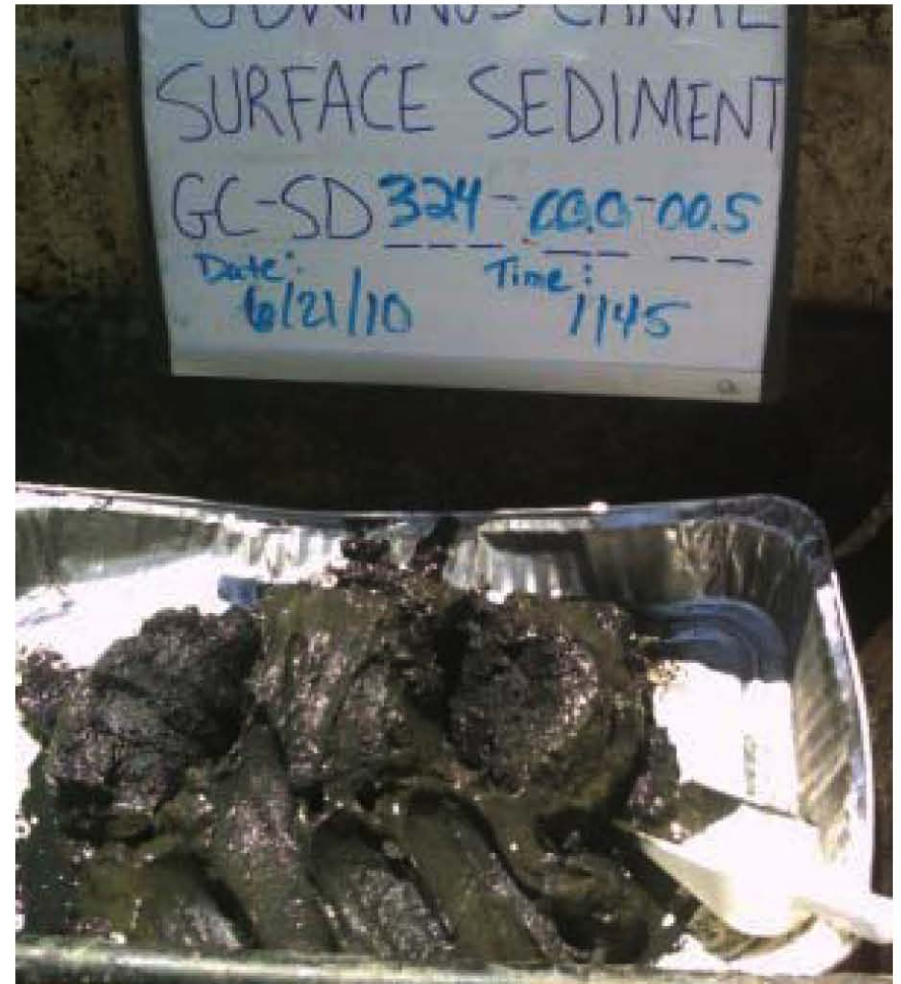 GOWANUS CANAL
SURFACE SEDIMENT
GC-SD 324-00.0-00.5
Date: Time:
6/21/10 1145